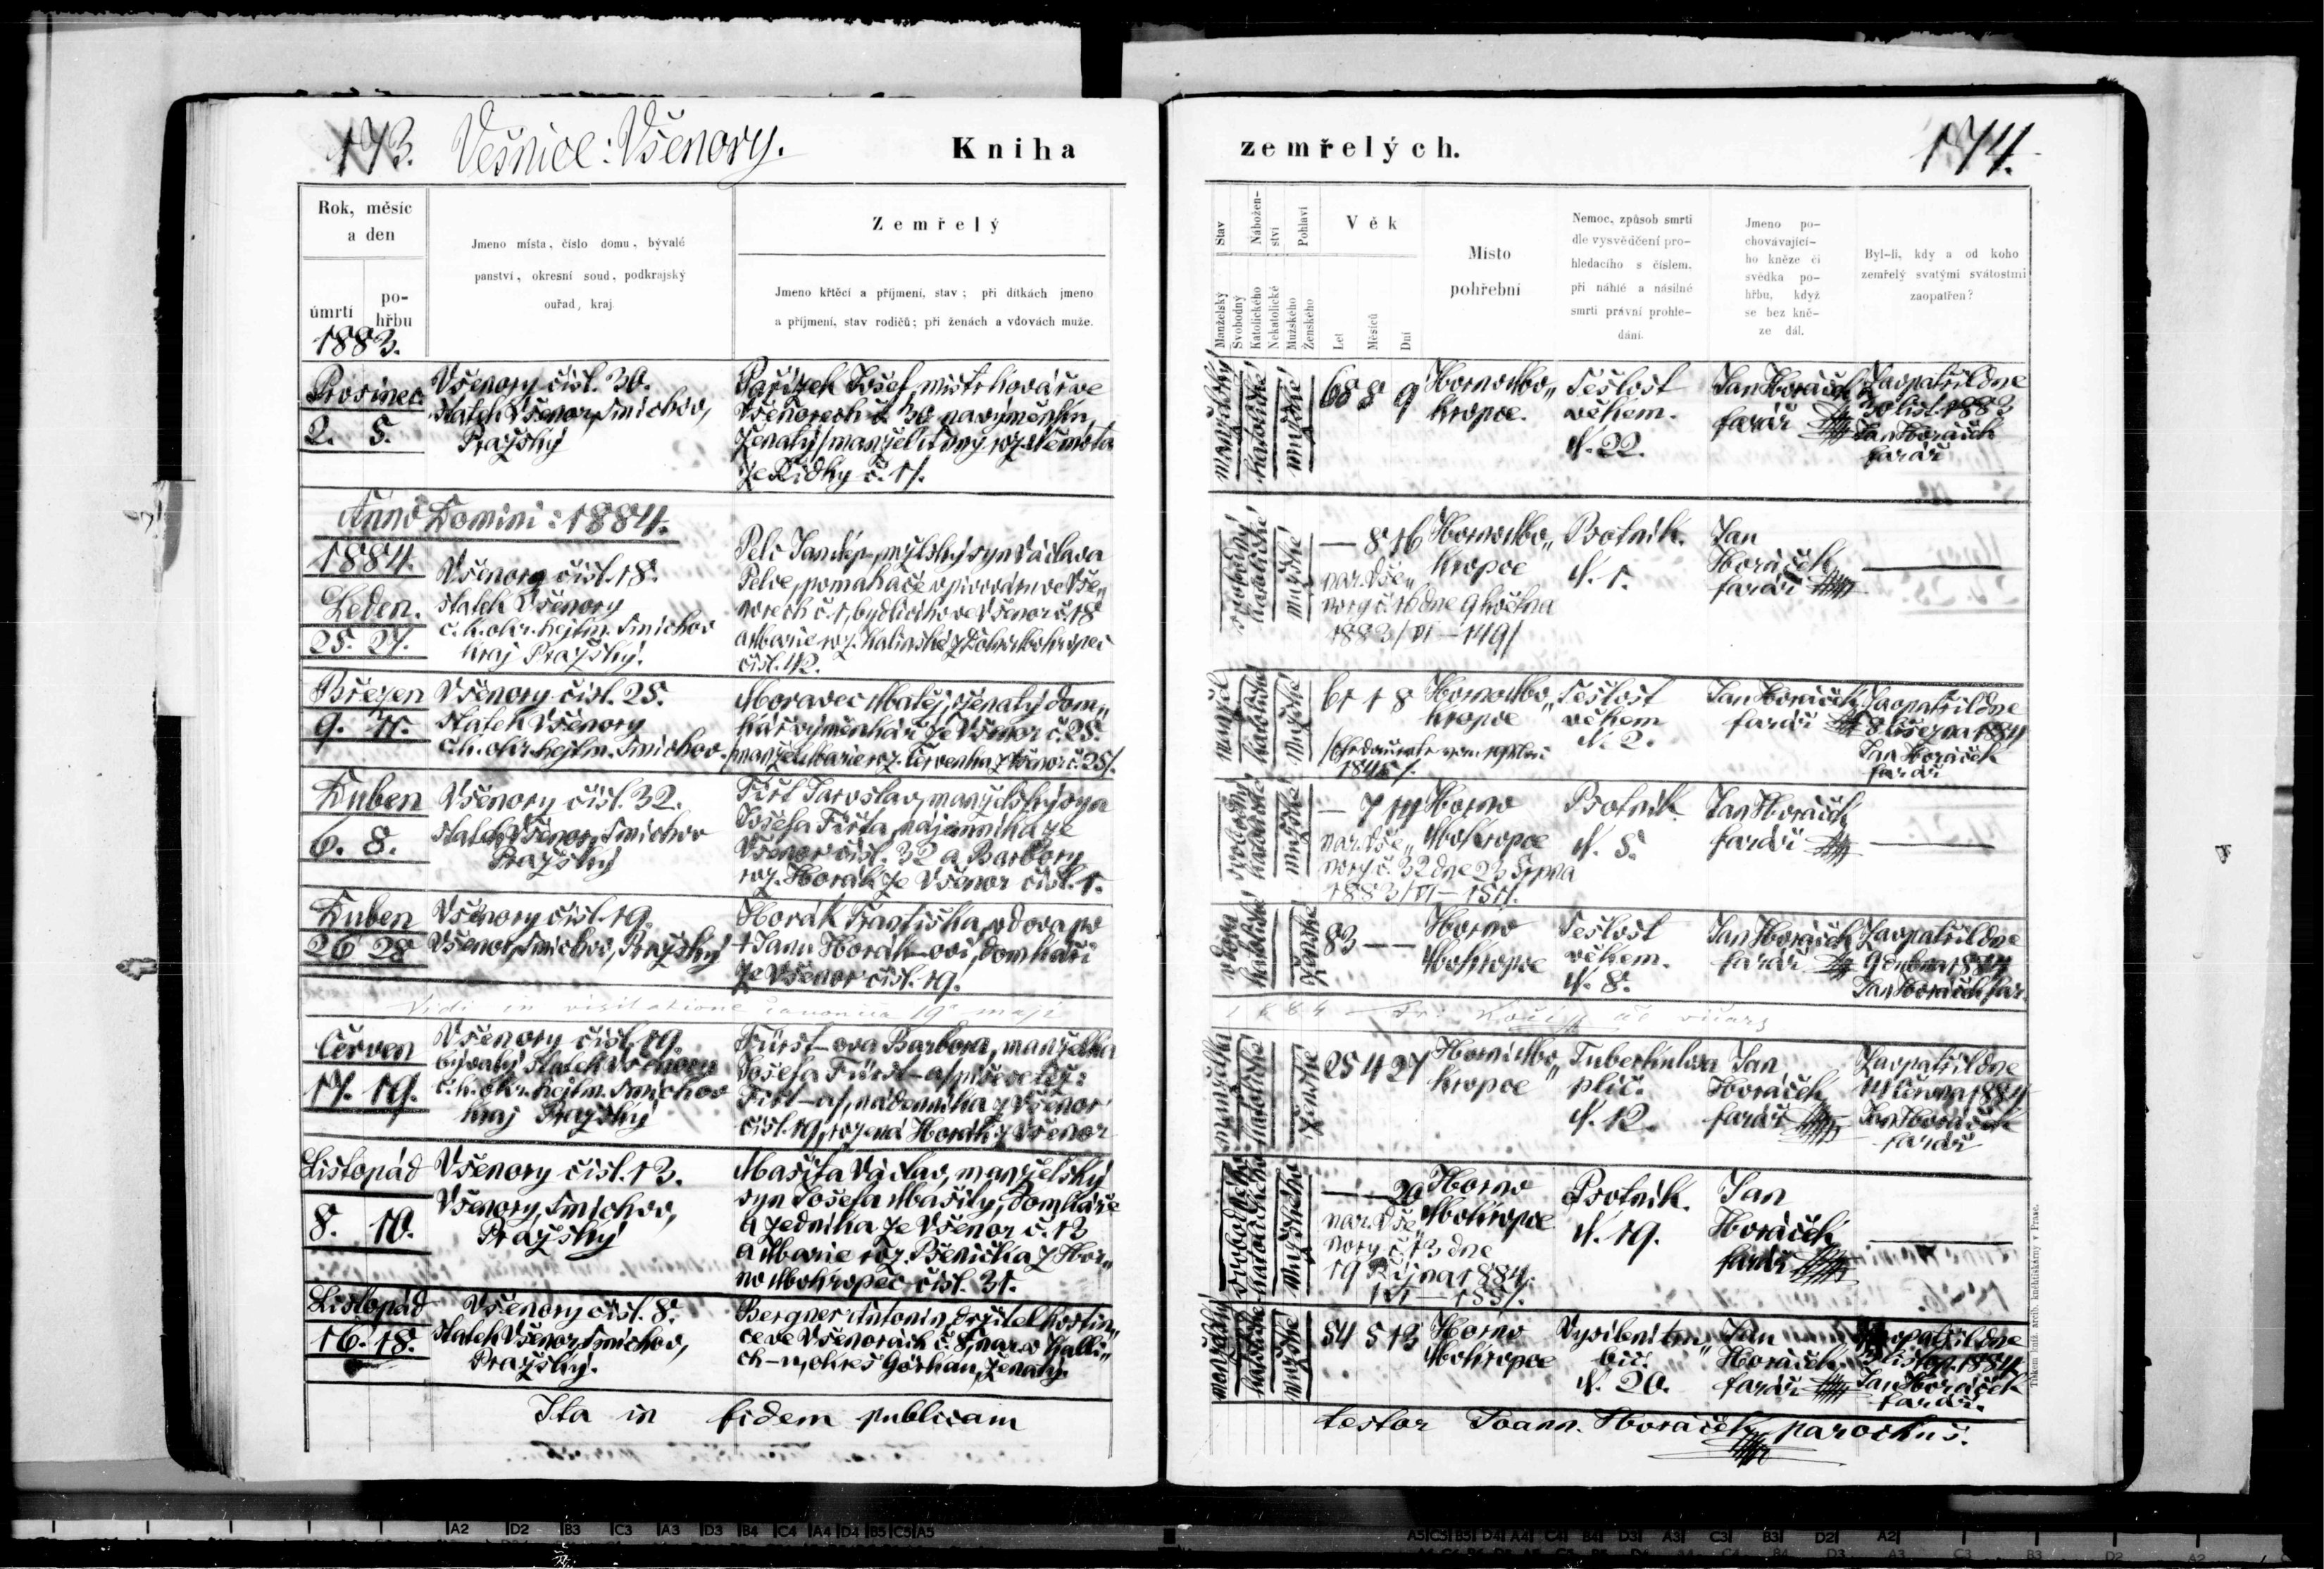 173. Vesnice: Všenory. Kniha
Rok, měsíc a den
úmrtí
po-hřbu
1883.
Jmeno místa, číslo domu, bývalé
panství, okresní soud, podkrajský
ouřad, kraj.
Zemřelý
Jmeno křtěcí a příjmení, stav; při dítkách jmeno
a příjmení, stav rodičů; při ženách a vdovách muže.
Prosinec
2. 5.
Všenory čísl. 30.
statek Všenor, Smíchov,
Pražský
Pařízek Josef, mistr kovář ve
Všenorech č 30 na výměnku,
ženatý
z Řidky č. 17.
Anno Domini: 1884.
1884.
Leden.
25. 27.
Všenory čísl. 18.
statek Všenory
c. k. okr. hejtm. Smíchov
kraj Pražský.
Pelc Jan syn Václava
Pelce, pomahače ve Vše„
norech č. 1, bydlícího ve Všenor č. 18
a Marie roz.
čísl. 42.
Březen
9. 11.
Všenory čísl. 25.
statek Všenory
c. k. okr. hejtm. Smíchov.
Moravec Matěj, ženatý dom„
kář výměnkář ze Všenor č. 25.
Marie roz. Červenka z Všenor č. 25/.
Duben
6. 8.
Všenory čísl. 32.
statek Všenor, Smíchov
Pražský
Fürt Jaroslav, manželský syn
Josefa Fürta, nájemníka ze
Všenor čísl. 32 a Barbory
roz. Horák ze Všenor čísl. 1.
Duben
26 28
Všenory čísl. 19.
Všenor, Smíchov, Pražský
Horák Františka, vdova po
† Janu Horák-ovi, domkáři
ze Všenor čísl. 19.
Vidi in visitatione canonica 19a maji
Červen
17. 19.
Všenory čísl. 19.
bývalý statek Všenory
c. k. okr. hejtm. Smíchov
kraj Pražský
Fürst-ova Barbora, manželka
Josefa Fürst-a
čísl. 19, rozená Horák z Všenor
Listopád
8. 10.
Všenory čísl. 13.
Všenory, Smíchov,
Pražský
Mašita Václav, manželský
syn Josefa Mašity, domkáře
a zedníka ze Všenor č. 13
a Marie roz. Pšenička z Hor„
no Mokropec čísl. 31.
Listopád
16. 18.
Všenory čísl. 8.
statek Všenor, Smíchov,
Pražský.
Bergner Antonín, držitel hostin„
ce ve Všenorách č. 8, nar. v Kalli„
ch okres Görkau, ženatý.
Ita in fidem publicam
zemřelých. 174.
Stav
Manželský
Svobodný
Nábožen-ství
Katolického
Nekatolické
Pohlaví
Mužského
Ženského
Věk
Let
Měsíců
Dní
Místo
pohřební
Nemoc, způsob smrti
dle vysvědčení pro-
hledacího s číslem.
při náhlé a násilné
smrti právní prohle-
dání.
Jmeno po-
chovávající-
ho kněze či
svědka po-
hřbu, když
se bez kně-
ze dál.
Byl-li, kdy a od koho
zemřelý svatými svátostmi
zaopatřen?
manželský
katolické
mužské
68 8 9
Horno Mo„
kropce.
Sešlost
věkem.
N. 22.
Jan Horáček
farář
Zaopatřil dne
30 list. 1883
Jan Horáček
farář
svobodný
katolické
mužské
— 8 16
nar. Vše„
nory č. 18 dne 9 května
1883/VI—149/
Horno Mo„
kropce
Psotník.
N. 1.
Jan
Horáček,
farář
—
manžel
katolické
mužské
61 1 8
1845/.
Horno Mo„
kropce
Sešlost
věkem
N. 2.
Jan Horáček
farář
Zaopatřil dne
8 března 1884
Jan Horáček
farář
svobodný
katolické
mužské
— 7 14
nar. Vše„
nory č. 32 dne 23 Srpna
1883/VI—151/.
Horno
Mokropce
Psotník.
N. 5.
Jan Horáček
farář
—
vdova
katolické
ženské
83 — —
Horno
Mokropce
Sešlost
věkem.
N. 8.
Jan Horáček
farář
Zaopatřil dne
9 Dubna 1884
Jan Horáček far.
1884
manželka
katolické
ženské
25 4 27
Horno Mo„
kropce
Tuberkulosa
plic.
N. 12.
Jan
Horáček,
farář
Zaopatřil dne
14 června 1884
Jan Horáček
farář
svobodného
katolického
mužského
— — 20
nar. Vše
nory č 13 dne
19 Října 1884.
Horno
Mokropce
Psotník.
N. 19.
Jan
Horáček
farář
—
manželský
katolické
mužské
54 5 13
Horno
Mokropce
N. 20.
Jan
Horáček,
farář
Zaopatřil dne
listop. 1884
Jan Horáček
farář.
testor Joann. Horáček, parochus.
Tiskem kníž. arcib. knihtiskárny v Praze.
A2 D2 B3 C3 A3 D3 B4 C4 A4 D4 B5 C5 A5
A5 C5 B5 D4 A4 C4 B4 D3 A3 C3 B3 D2 A2